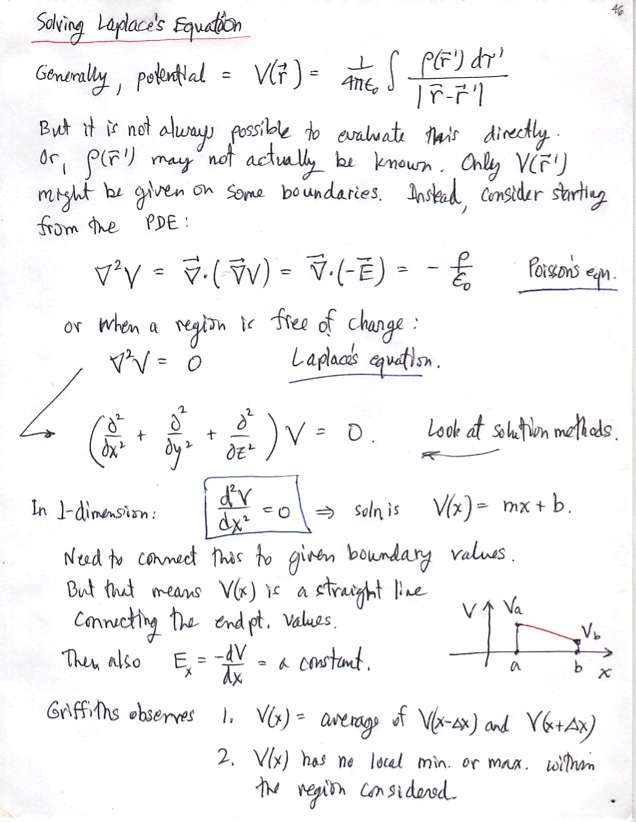 46
Solving Laplace's Equation
Generally, potential = V(r⃗) = 1/4πε₀ ∫ ρ(r⃗') dτ' / |r⃗-r⃗'|
But it is not always possible to evaluate this directly.
Or, ρ(r⃗') may not actually be known. Only V(r⃗')
might be given on some boundaries. Instead, consider starting
from the PDE:
∇²V = ∇⃗·(∇⃗V) = ∇⃗·(-E⃗) = - ρ/ε₀ Poisson's eqn.
or when a region is free of change:
∇²V = 0 Laplace's equation.
(∂²/∂x² + ∂²/∂y² + ∂²/∂z²) V = 0. Look at solution methods.
In 1-dimension: d²V/dx² = 0 ⇒ soln is V(x) = mx + b.
Need to connect this to given boundary values.
But that means V(x) is a straight line
connecting the endpt. values.
V Va Vb
a b x
Then also Eₓ = -dV/dx = a constant.
Griffiths observes 1. V(x) = average of V(x-Δx) and V(x+Δx)
2. V(x) has no local min. or max. within
the region considered.